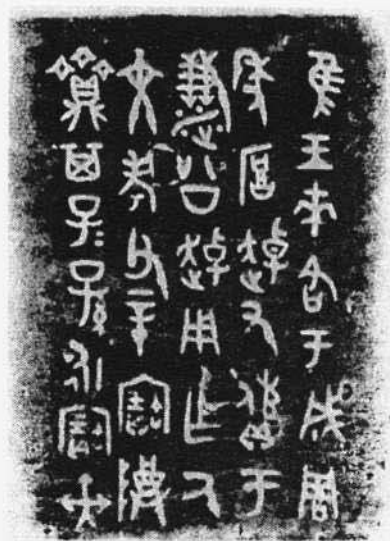 隹王來各于成周
年厚趠又于
溓公趠用乍氒
文考父辛寶𬯚
齍其子=孫=永寶朿